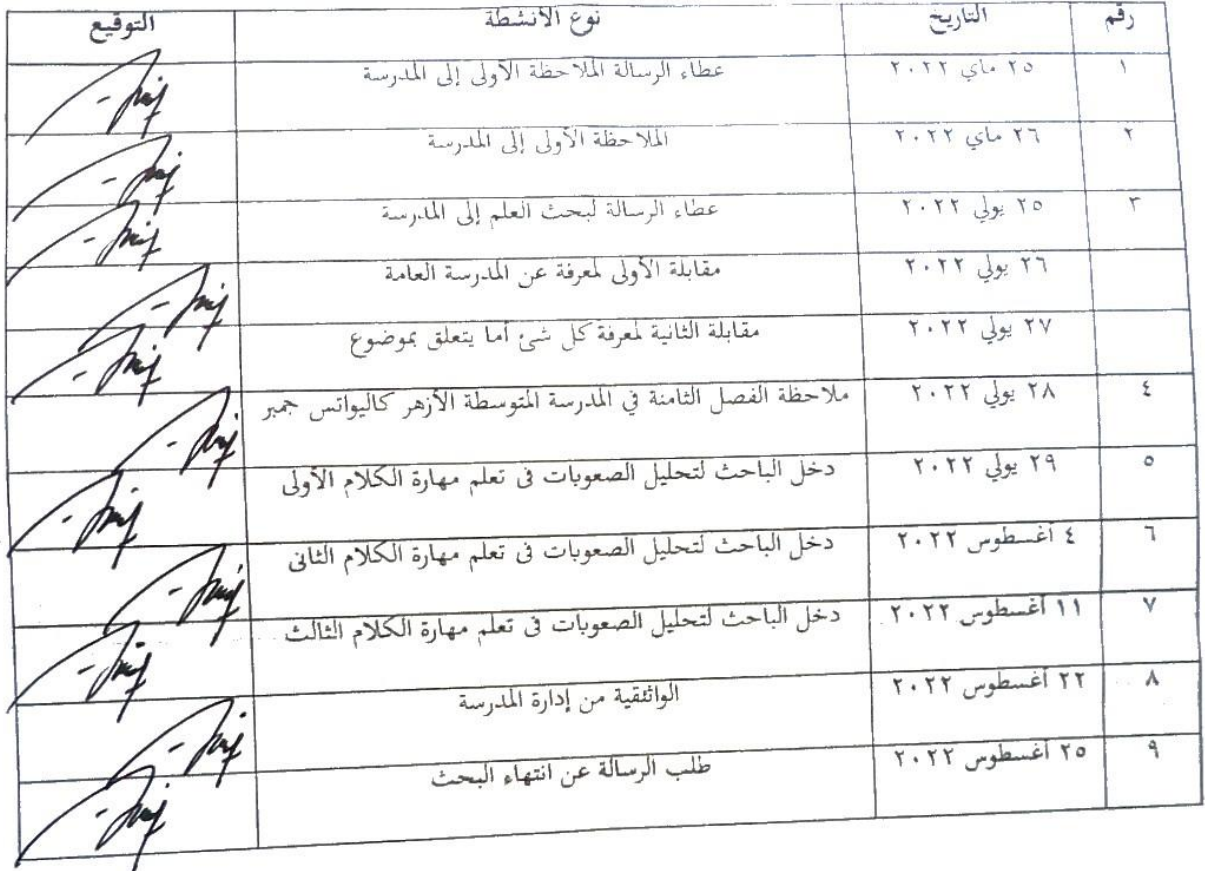 رقم التاريخ نوع الأنشطة التوقيع
١ ٢٥ ماي ٢٠٢٢ عطاء الرسالة الملاحظة الأولى إلى المدرسة
٢ ٢٦ ماي ٢٠٢٢ الملاحظة الأولى إلى المدرسة
٣ ٢٥ يولي ٢٠٢٢ عطاء الرسالة لبحث العلم إلى المدرسة
٢٦ يولي ٢٠٢٢ مقابلة الأولى لمعرفة عن المدرسة العامة
٢٧ يولي ٢٠٢٢ مقابلة الثانية لمعرفة كل شئ أما يتعلق بموضوع
٤ ٢٨ يولي ٢٠٢٢ ملاحظة الفصل الثامنة في المدرسة المتوسطة الأزهر كاليواتس جمبر
٥ ٢٩ يولي ٢٠٢٢ دخل الباحث لتحليل الصعوبات فى تعلم مهارة الكلام الأولى
٦ ٤ أغسطوس ٢٠٢٢ دخل الباحث لتحليل الصعوبات فى تعلم مهارة الكلام الثانى
٧ ١١ أغسطوس ٢٠٢٢ دخل الباحث لتحليل الصعوبات فى تعلم مهارة الكلام الثالث
٨ ٢٢ أغسطوس ٢٠٢٢ الواثئقية من إدارة المدرسة
٩ ٢٥ أغسطوس ٢٠٢٢ طلب الرسالة عن انتهاء البحث